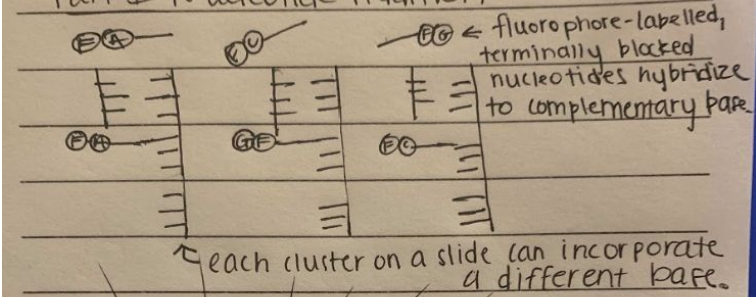 F A
C U
F G ← fluorophore-labelled,
terminally blocked
nucleotides hybridize
to complementary base.
F A
G F
F C
↖ each cluster on a slide can incorporate
a different base.